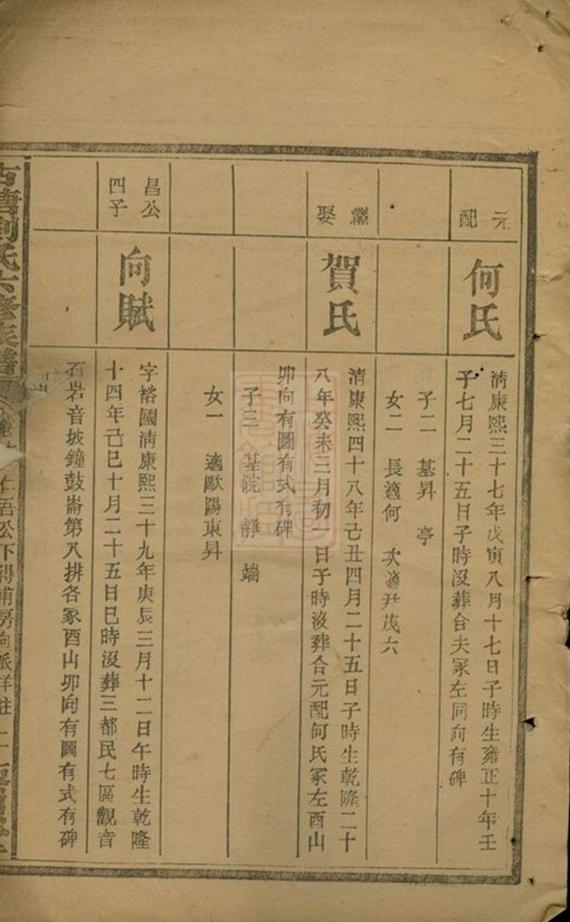 元配
何氏
清康熙三十七年戊寅八月十七日子時生雍正十年壬
子七月二十五日子時沒葬合夫冢左同向有碑
子二　基昇　亭
女二　長適何　次適尹茂六
繼娶
賀氏
清康熙四十八年己丑四月二十五日子時生乾隆二十
八年癸未三月初一日子時沒葬合元配何氏冢左酉山
卯向有圖有式有碑
子三　基院　靜　端
女一　適歐陽東昇
昌公四子
向賦
字裕國清康熙三十九年庚辰三月十二日午時生乾隆
十四年己巳十月二十五日巳時沒葬三都民七區觀音
石岩音坡鐘鼓崙第八排各冢酉山卯向有圖有式有碑
劉氏六修族譜